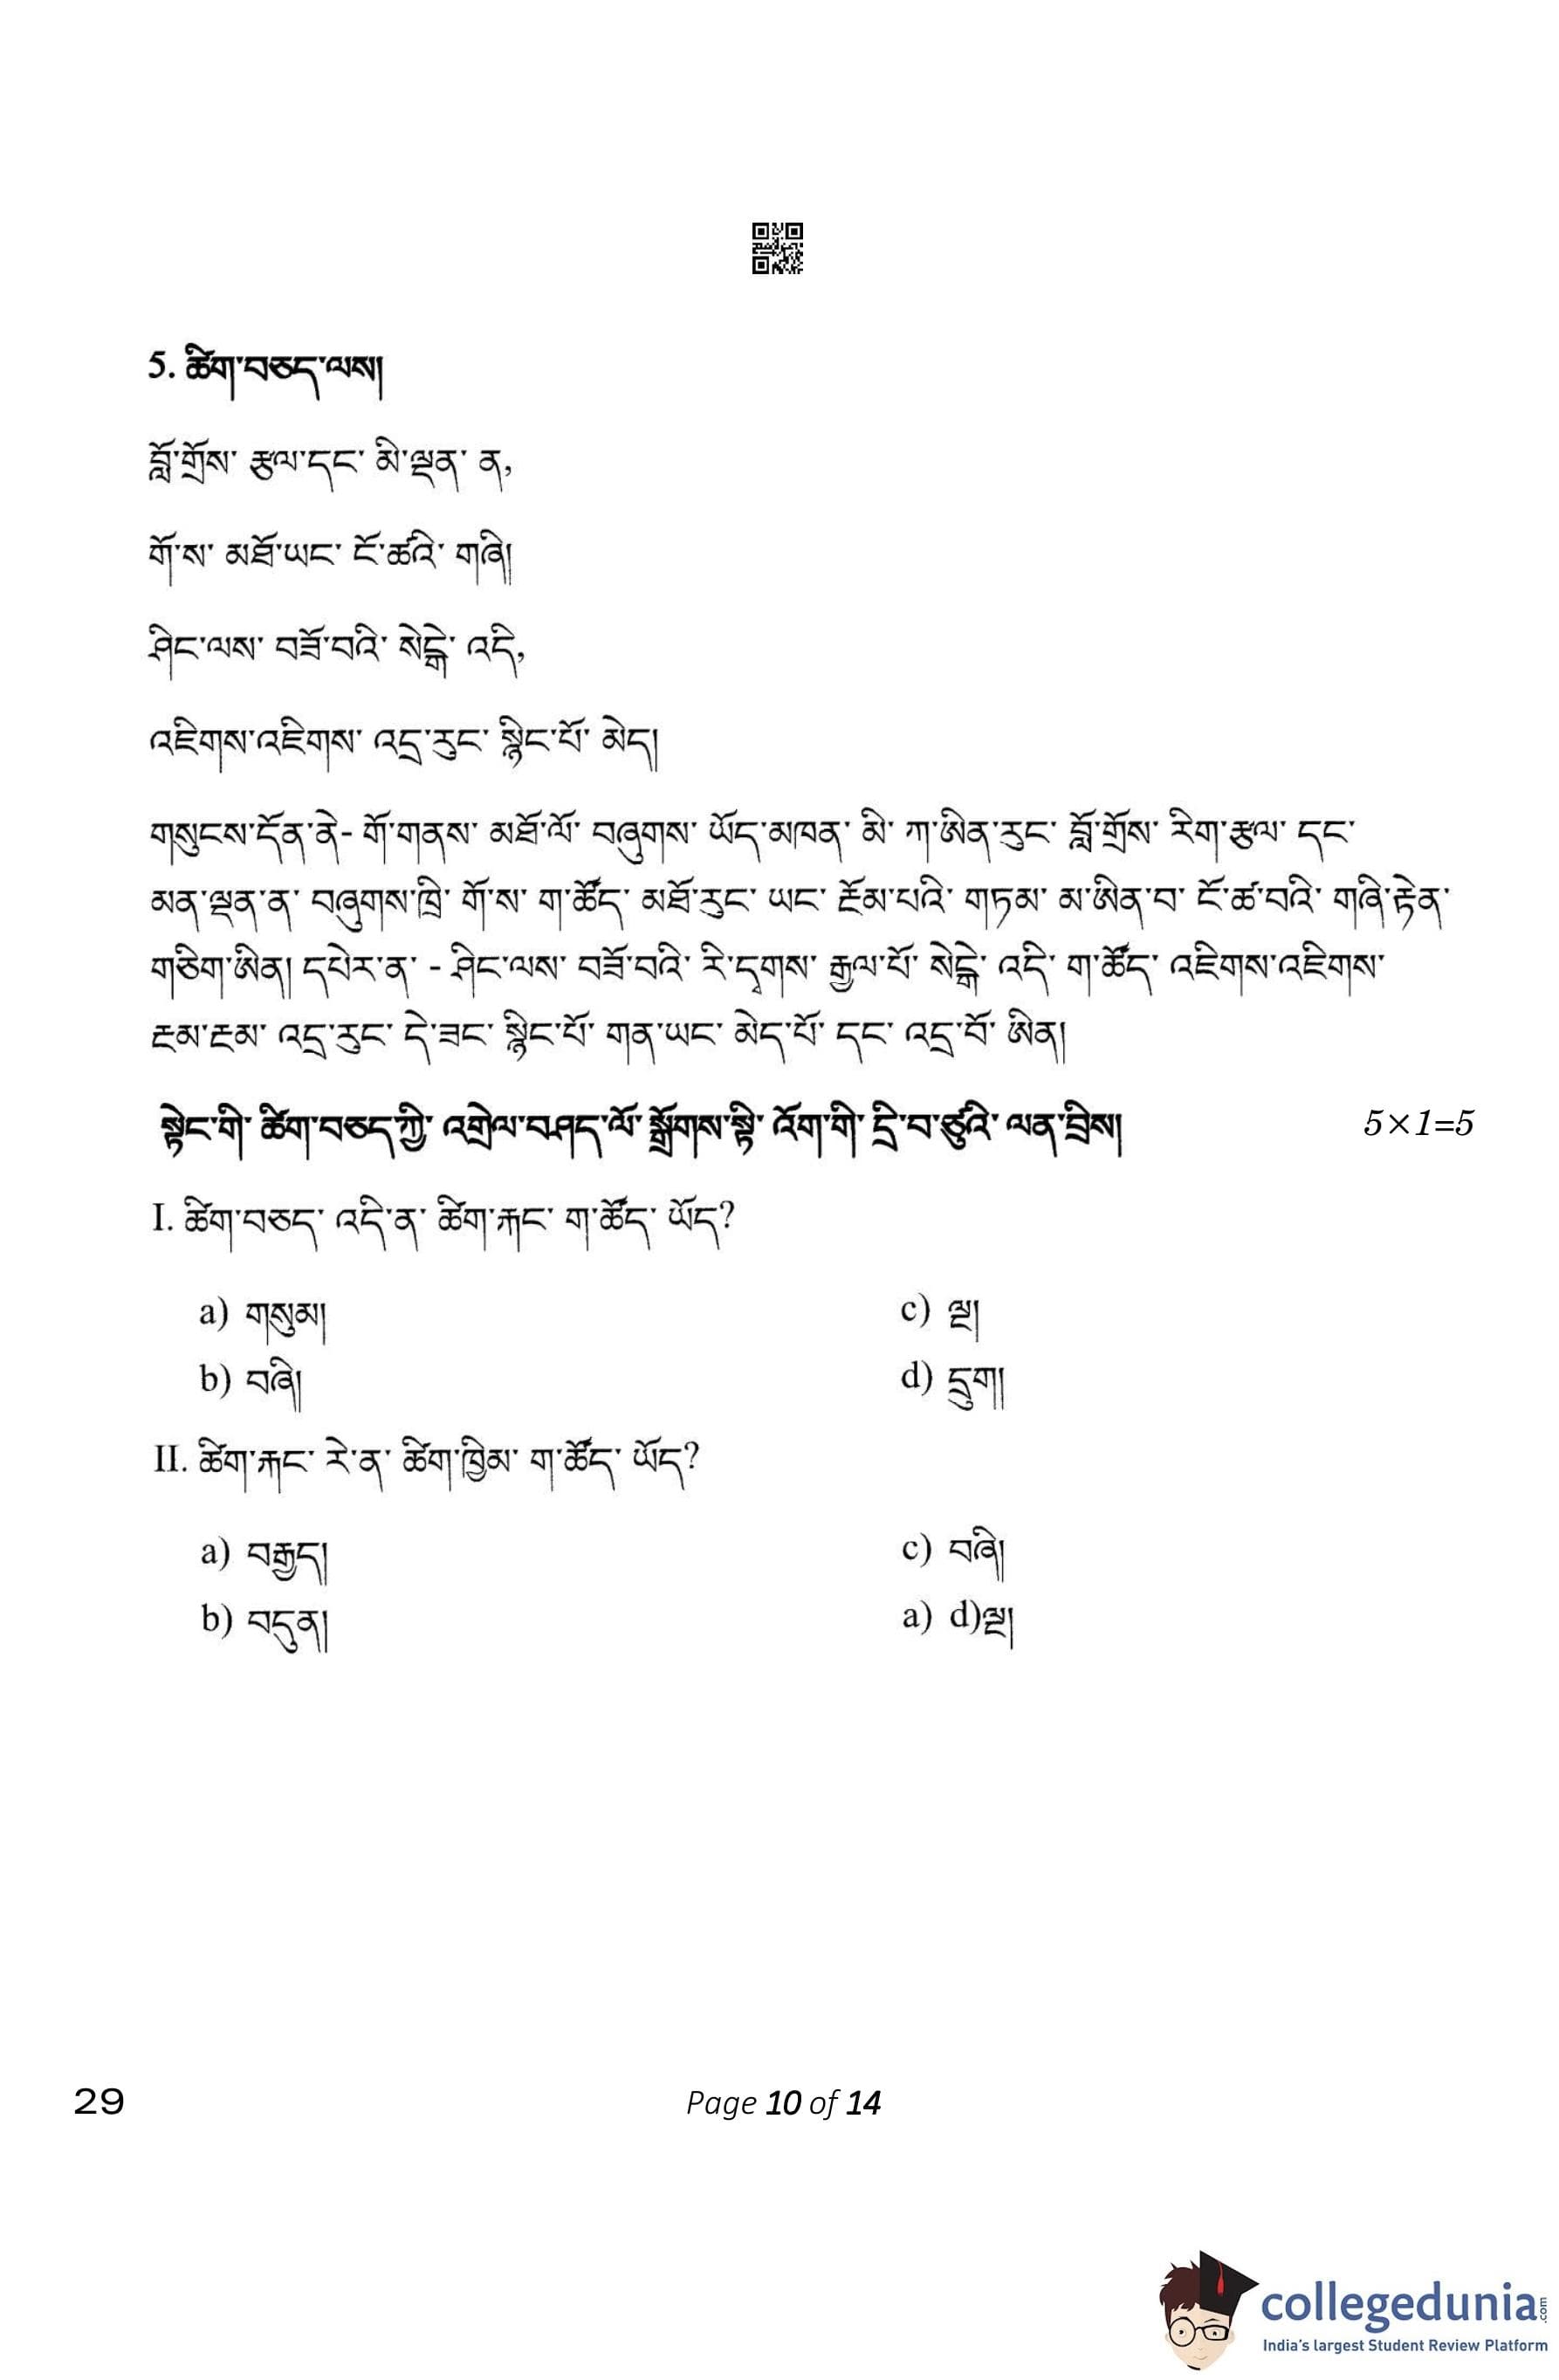 5. ཚིག་བཅད་ལས།
བློ་གྲོས་ རྩལ་དང་ མི་ལྡན་ ན,
གོ་ས་ མཐོ་ཡང་ ངོ་ཚའི་ གཞི།
ཤིང་ལས་ བཟོ་བའི་ སེངྒེ་ འདི,
འཇིགས་འཇིགས་ འདྲ་རུང་ སྙིང་པོ་ མེད།
གསུངས་དོན་ནེ- གོ་གནས་ མཐོ་ལོ་ བཞུགས་ ཡོད་མཁན་ མི་ ཀ་ཨིན་རུང་ བློ་གྲོས་ རིག་རྩལ་ དང་
མན་ལྡན་ན་ བཞུགས་ཁྲི་ གོ་ས་ ག་ཚོད་ མཐོ་རུང་ ཡང་ རྔོམ་པའི་ གཏམ་ མ་ཨིན་བ་ ངོ་ཚ་བའི་ གཞི་རྟེན་
གཅིག་ཨིན། དཔེར་ན་ - ཤིང་ལས་ བཟོ་བའི་ རི་དྭགས་ རྒྱལ་པོ་ སེངྒེ་ འདི་ ག་ཚོད་ འཇིགས་འཇིགས་
རྔམ་རྔམ་ འདྲ་རུང་ དེ་ཟང་ སྙིང་པོ་ གན་ཡང་ མེད་པོ་ དང་ འདྲ་བོ་ ཨིན།
སྟེང་གི་ ཚིག་བཅད་ཀྱི་ འགྲེལ་བཤད་ལོ་ སྒྲོགས་སྟི་ འོག་གི་ དྲི་བ་ཙུའི་ ལན་བྲིས། 5×1=5
I. ཚིག་བཅད་ འདི་ན་ ཚིག་རྐང་ ག་ཚོད་ ཡོད?
a) གསུམ། c) ལྔ།
b) བཞི། d) དྲུག།
II. ཚིག་རྐང་ རེ་ན་ ཚིག་ཁྱིམ་ ག་ཚོད་ ཡོད?
a) བརྒྱད། c) བཞི།
b) བདུན། a) d)ལྔ།
29 Page 10 of 14
collegedunia.com
India's largest Student Review Platform